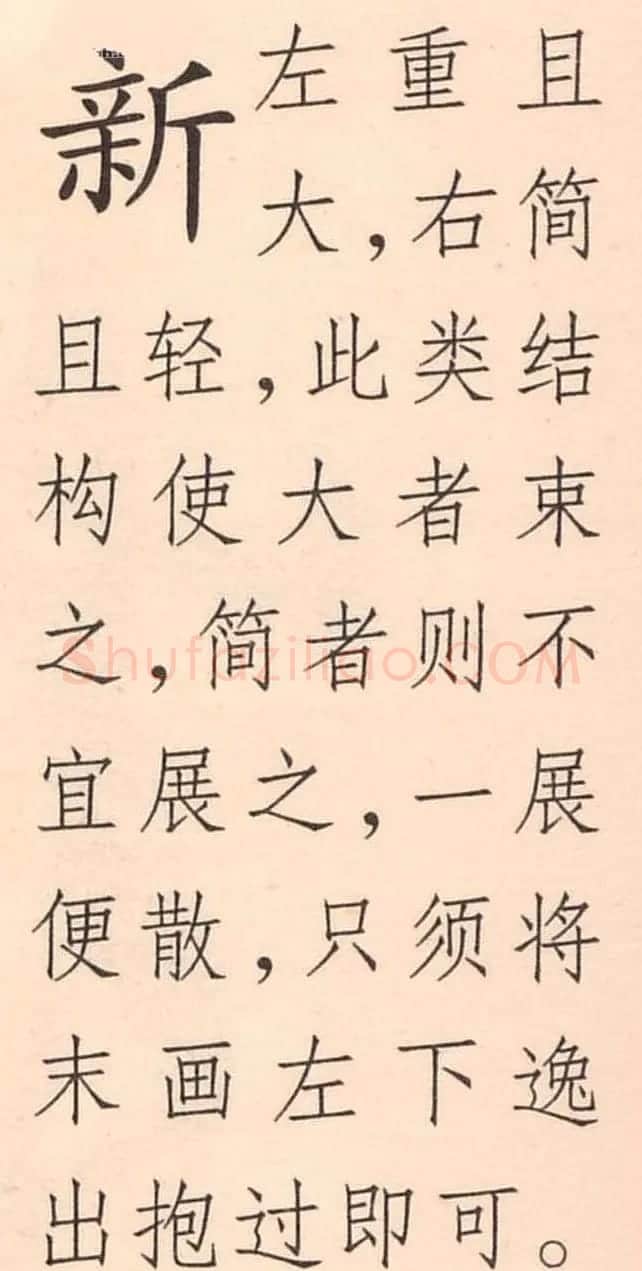 新
左重且
大，右简
且轻，此类结
构使大者束
之，简者则不
宜展之，一展
便散，只须将
末画左下逸
出抱过即可。
shufaziliao.COM